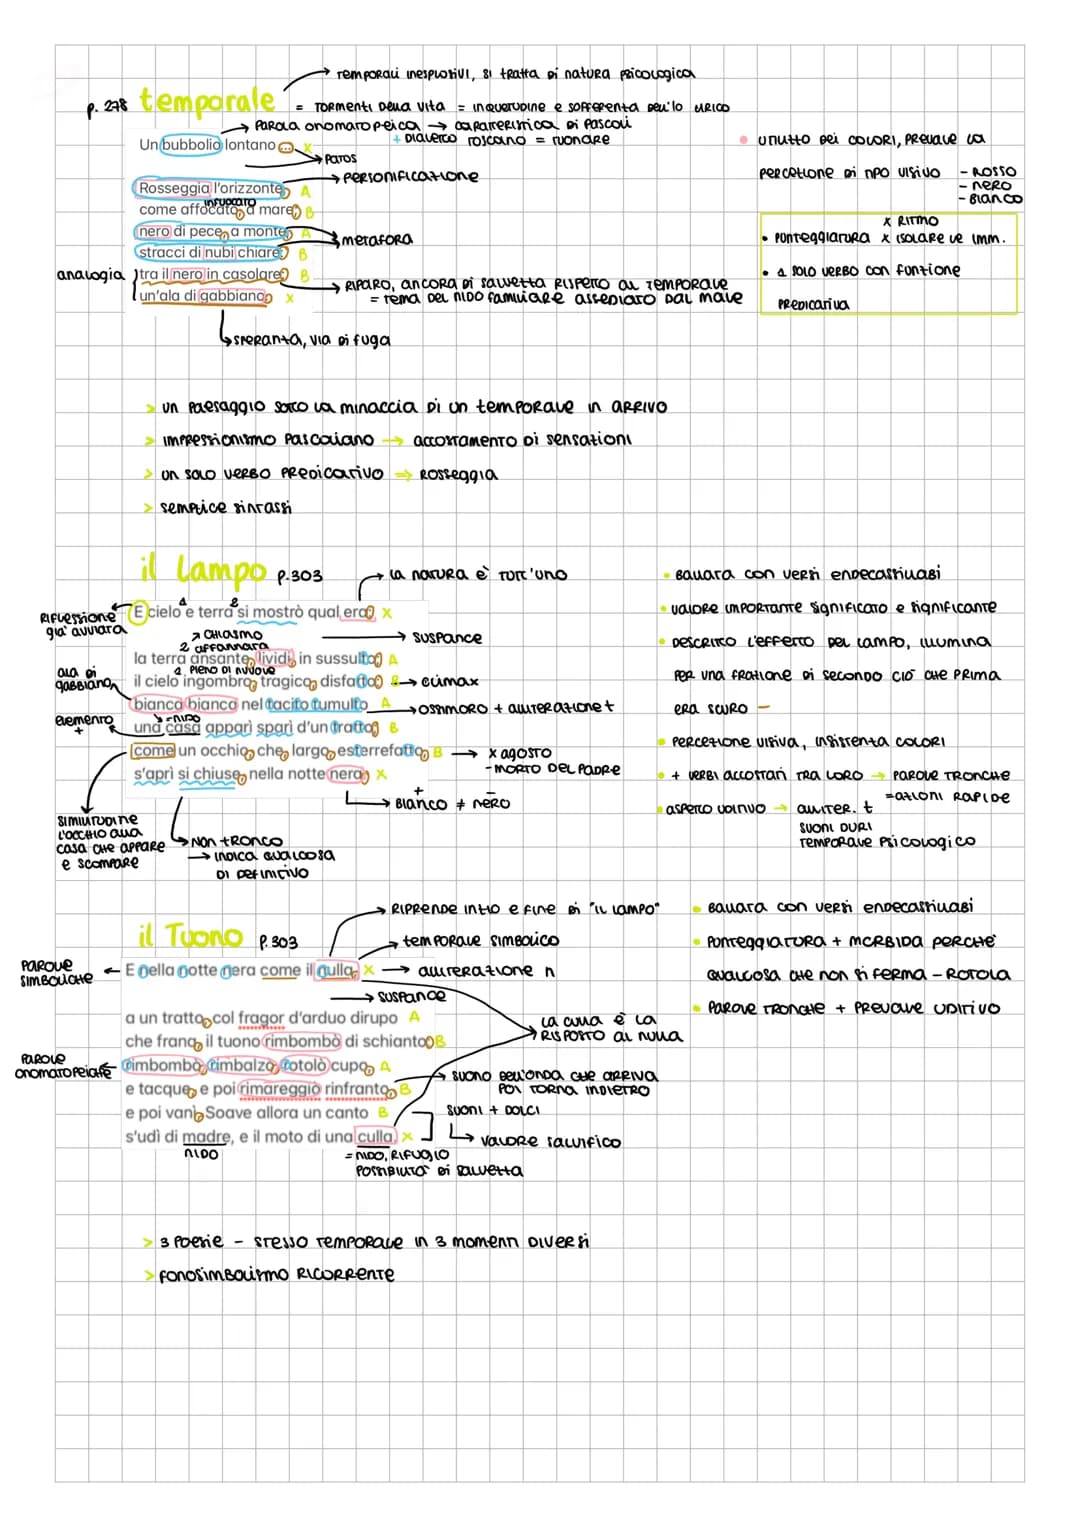 → temporali inesplosivi, si tratta di natura psicologica
p. 278 temporale = tormenti della vita = inquietudine e sofferenza dell'io lirico
→ parola onomatopeica → caratteristica di Pascoli
+ dialetto toscano = tuonare
Un bubbolio lontano... X
→ patos
Rosseggia l'orizzonte, A → personificazione
infuocato
come affocato, a mare; B
nero di pece, a monte, A
→ metafora
stracci di nubi chiare: B
analogia tra il nero in casolare; B
→ riparo, ancora di salvezza rispetto al temporale
= tema del nido familiare assediato dal male
un'ala di gabbiano. X
→ speranza, via di fuga
• utilizzo dei colori, prevale la
percezione di tipo visivo
- rosso
- nero
- bianco
• punteggiatura x ritmo
x isolare le imm.
• 1 solo verbo con funzione
predicativa
> un paesaggio sotto la minaccia di un temporale in arrivo
> impressionismo pascoliano → accostamento di sensazioni
> un solo verbo predicativo → rosseggia
> semplice sintassi
il Lampo p.303
→ la natura è tutt'uno
riflessione già avviata
1 2
E cielo e terra si mostrò qual era: X
→ chiasmo
→ suspance
2 affannata
la terra ansante, livida, in sussulto; A
1 pieno di nuvole
il cielo ingombro, tragico, disfatto: B → climax
ala di gabbiano
bianca bianca nel tacito tumulto A → ossimoro + allitterazione t
elemento +
= nido
una casa apparì sparì d'un tratto; B
come un occhio, che, largo, esterrefatto, B → x agosto
- morto del padre
s'aprì si chiuse, nella notte nera. X
+ -
→ bianco ≠ nero
similitudine
l'occhio alla
casa che appare
e scompare
→ non tronco
→ indica qualcosa
di definitivo
• ballata con versi endecasillabi
• valore importante significato e significante
• descritto l'effetto del lampo, illumina
per una frazione di secondo ciò che prima
era scuro -
• percezione visiva, insistenza colori
• + verbi accostati tra loro → parole tronche
= azioni rapide
• aspetto uditivo → alliter. t
suoni duri
temporale psicologico
→ riprende inizio e fine di "il lampo"
il Tuono p.303
→ temporale simbolico
parole simboliche
E nella notte nera come il nulla, X → allitterazione n
→ suspance
a un tratto, col fragor d'arduo dirupo A
→ la culla è la
risposta al nulla
che frana, il tuono rimbombò di schianto: B
parole onomatopeiche
rimbombò, rimbalzò, rotolò cupo, A
→ suono dell'onda che arriva
poi torna indietro
e tacque, e poi rimareggiò rinfranto, B
e poi vanì. Soave allora un canto B
suoni + dolci
s'udì di madre, e il moto di una culla. X
→ valore salvifico
nido
= nido, rifugio
possibilità di salvezza
• ballata con versi endecasillabi
• punteggiatura + morbida perché
qualcosa che non si ferma - rotola
• parole tronche + prevale uditivo
> 3 poesie - stesso temporale in 3 momenti diversi
> fonosimbolismo ricorrente